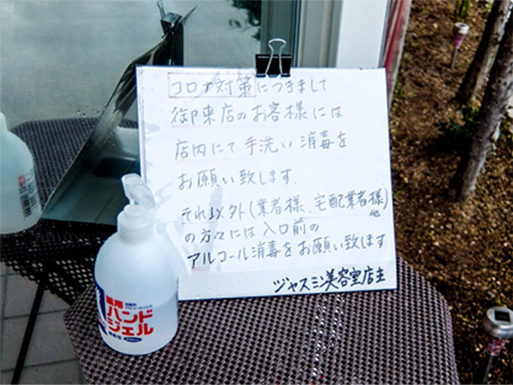 コロナ対策につきまして
御来店のお客様には
店内にて手洗い消毒を
お願い致します.
それ以外(業者様、宅配業者様)
他
の方々には入口前の
アルコール消毒をお願い致します
ジャスミン美容室店主
薬用
ハンド
ジェル